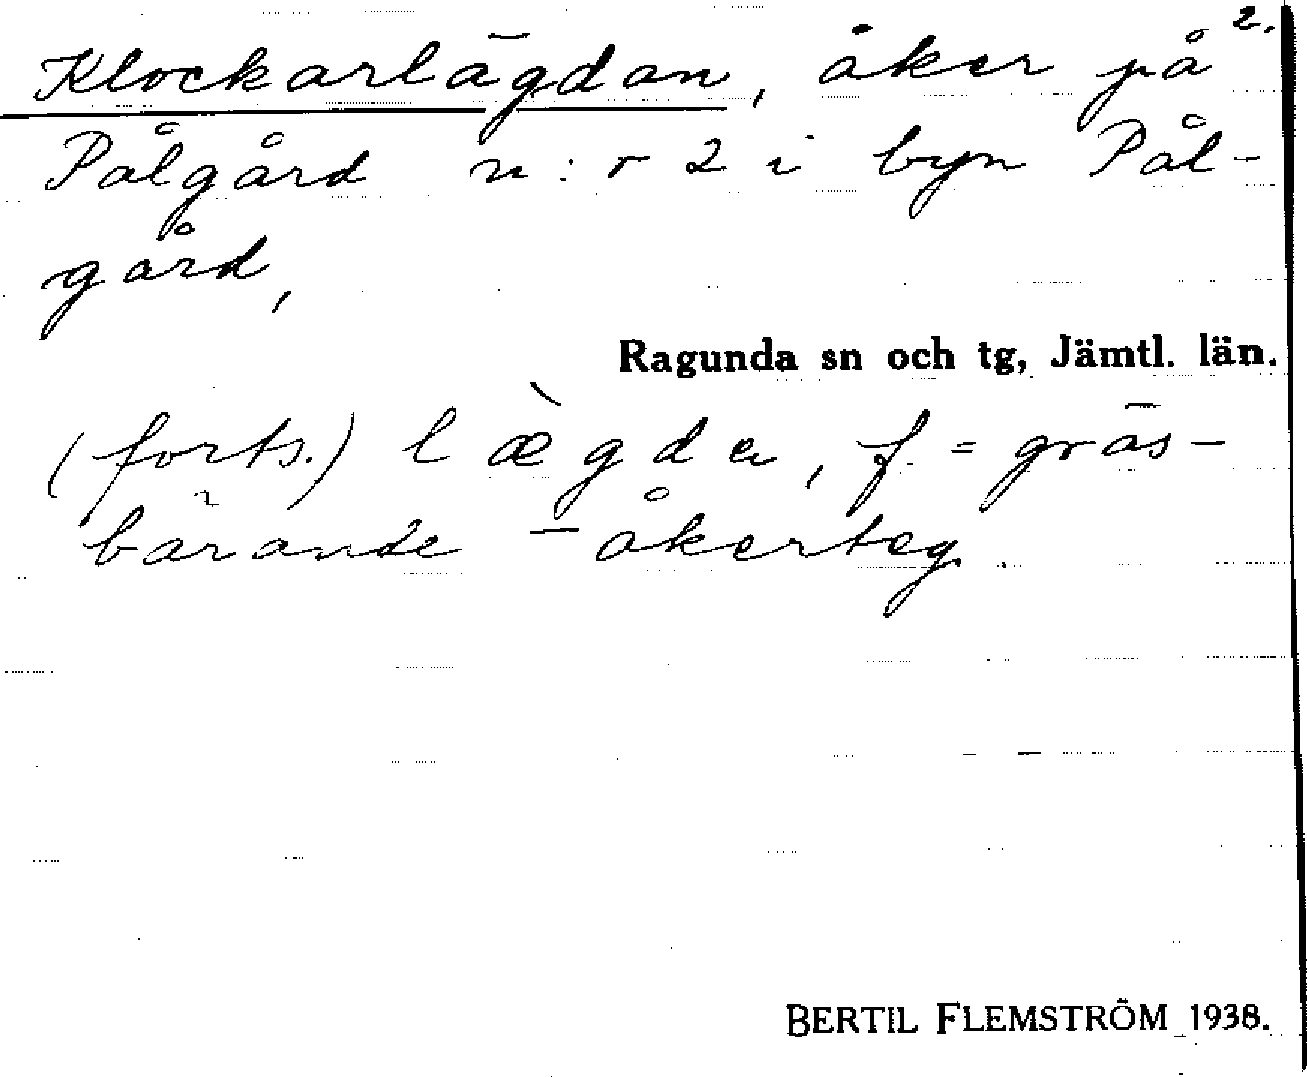 2.
Klockarlägdan, åker på
Pålgård n:r 2 i byn Pål-
gård,
Ragunda sn och tg, Jämtl. län.
(forts.) læ̀gda, f. = gräs-
bärande åkerteg.
BERTIL FLEMSTRÖM 1938.